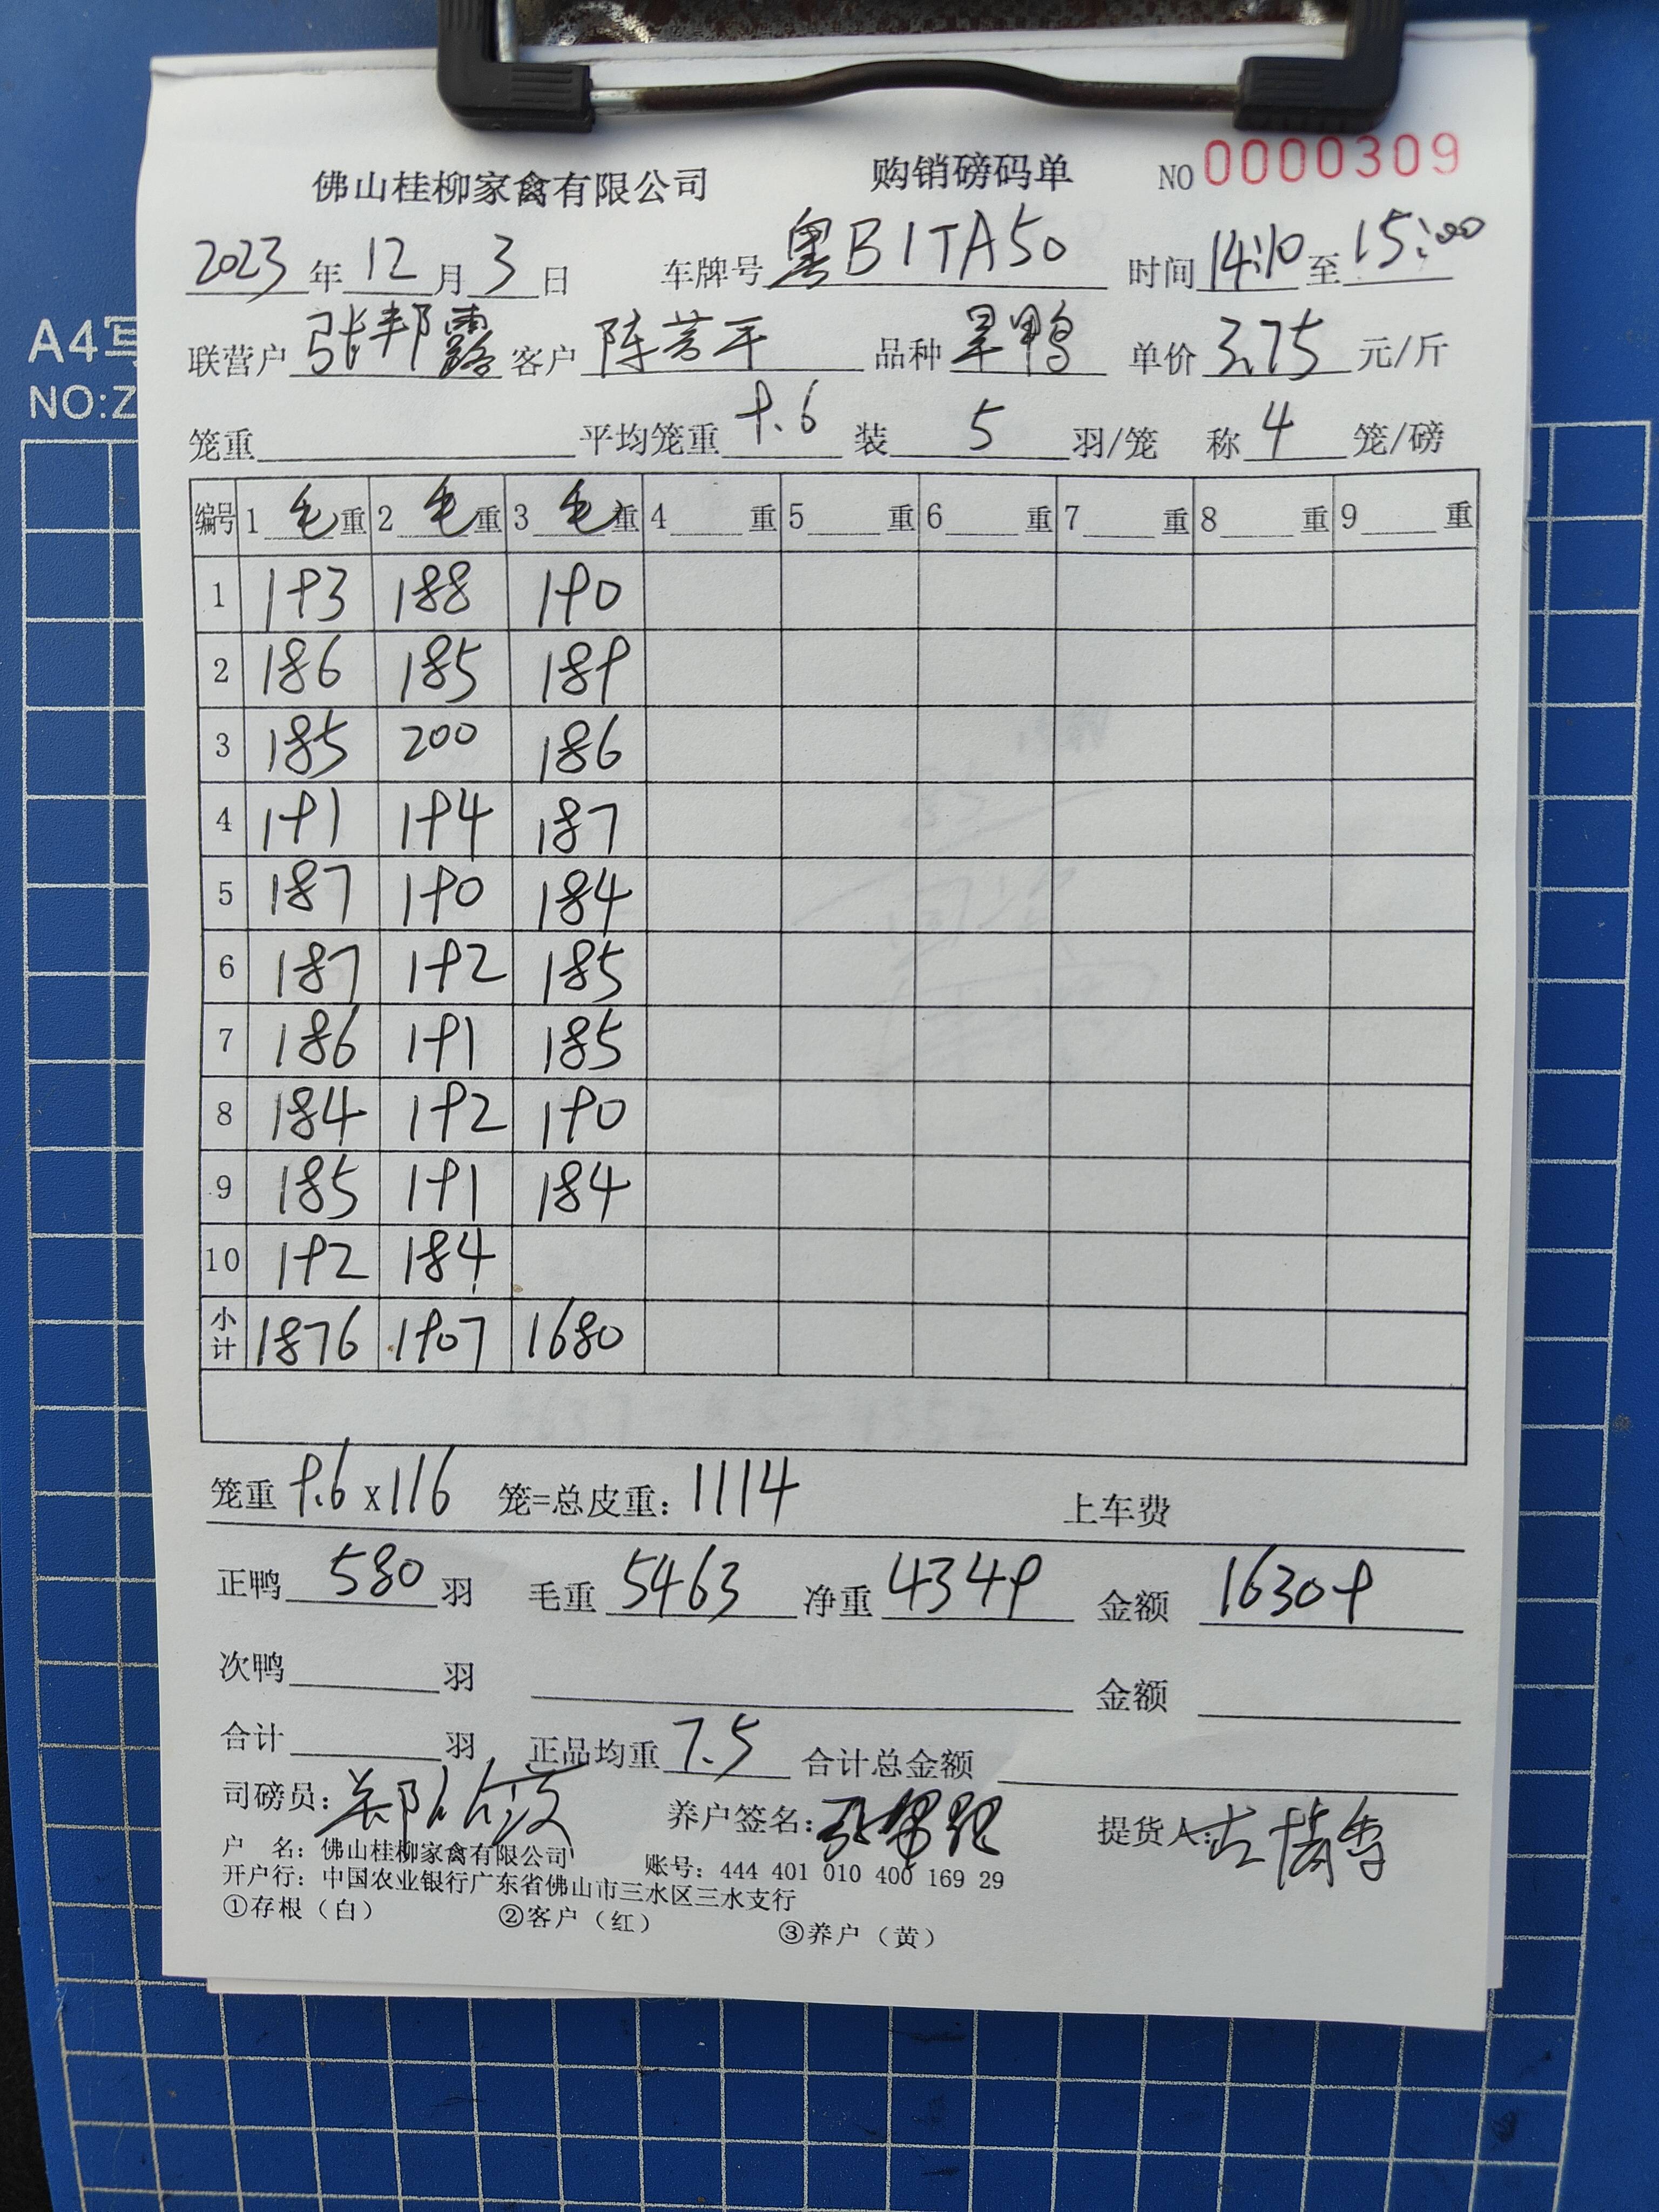 佛山桂柳家禽有限公司 购销磅码单 NO 0000309
2023年12月3日 车牌号 粤B1TA50 时间 14:10 至 15:00
联营户 张邦露 客户 陈芳平 品种 旱鸭 单价 3.75 元/斤
笼重 平均笼重 9.6 装 5 羽/笼 称 4 笼/磅
编号 1 毛重 2 毛重 3 毛重 4 重 5 重 6 重 7 重 8 重 9 重
1 193 188 190
2 186 185 189
3 185 200 186
4 191 194 187
5 187 190 184
6 187 192 185
7 186 191 185
8 184 192 190
9 185 191 184
10 192 184
小计 1876 1907 1680
笼重 9.6 x 116 笼=总皮重: 1114 上车费
正鸭 580 羽 毛重 5463 净重 4349 金额 16309
次鸭 羽 金额
合计 羽 正品均重 7.5 合计总金额
司磅员: 养户签名: 提货人:
户 名: 佛山桂柳家禽有限公司 账号: 444 401 010 400 169 29
开户行: 中国农业银行广东省佛山市三水区三水支行
①存根（白） ②客户（红） ③养户（黄）
A4写
NO:Z